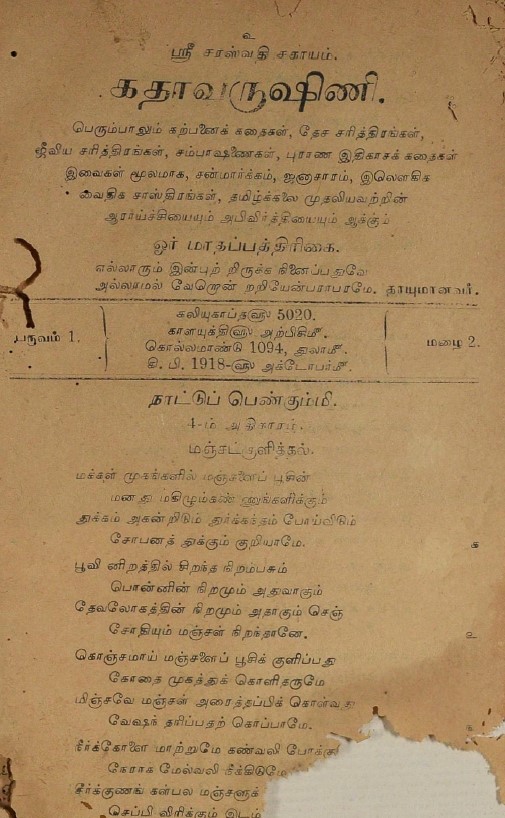 உ
ஸ்ரீ சரஸ்வதி சகாயம்.
கதாவருஷிணி.
பெரும்பாலும் கற்பனைக் கதைகள், தேச சரித்திரங்கள்,
ஜீவிய சரித்திரங்கள், சம்பாஷணைகள், புராண இதிகாசக் கதைகள்
இவைகள் மூலமாக, சன்மார்க்கம், ஜனாசாரம், இலௌகிக
வைதிக சாஸ்திரங்கள், தமிழ்க்கலை முதலியவற்றின்
ஆராய்ச்சியையும் அபிவிர்த்தியையும் ஆக்கும்
ஓர் மாதப்பத்திரிகை.
எல்லாரும் இன்புற் றிருக்க நினைப்பதுவே
அல்லாமல் வேறொன் றறியேன்பராபரமே. தாயுமானவர்.
பருவம் 1.
கலியுகாப்த௵ 5020.
காளயுக்தி௵ அற்பிகைமீ
கொல்லமாண்டு 1094, துலாமீ.
கி. பி. 1918-௵ அக்டோபர்மீ
மழை 2.
நாட்டுப் பெண்கும்மி.
4-ம் அதிகாரம்.
மஞ்சட்குளித்தல்.
மக்கள் முகங்களில் மஞ்சளைப் பூசின்
மனது மகிழும்கண் ணுங்களிக்கும்
துக்கம் அகன்றிடும் துர்க்கந்தம் போய்விடும்
சோபனத் துக்கும் குறியாமே. க
பூவி னிறத்தில் சிறந்த நிறம்பசும்
பொன்னின் நிறமும் அதுவாகும்
தேவலோகத்தின் நிறமும் அதாகும் செஞ்
சோதியும் மஞ்சள் நிறந்தானே. உ
கொஞ்சமாய் மஞ்சளைப் பூசிக் குளிப்பது
கோதை முகத்துக் கொளிதருமே
மிஞ்சவே மஞ்சள் அரைத்தப்பிக் கொள்வது
வேஷந் தரிப்பதற் கொப்பாமே.
நீர்க்கோளை மாற்றுமே கண்வலி போக்கு
கோரக மேல்வலி நீக்கிடுமே
சீர்க்குணங் கள்பல மஞ்சளுக்
செப்பி விரிக்கும் இடம்